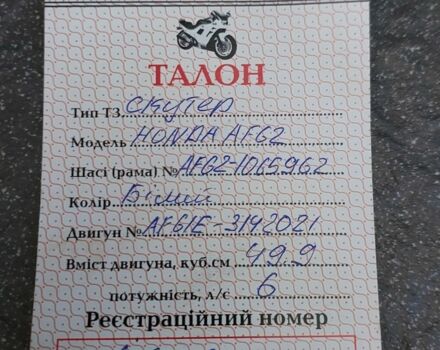 ТАЛОН
Тип ТЗ Скутер
Модель HONDA AF62
Шасі (рама) № AF62-1065962
Колір Білий
Двигун № AF61E-3142021
Вміст двигуна, куб.см 49.9
потужність, л/с 6
Реєстраційний номер